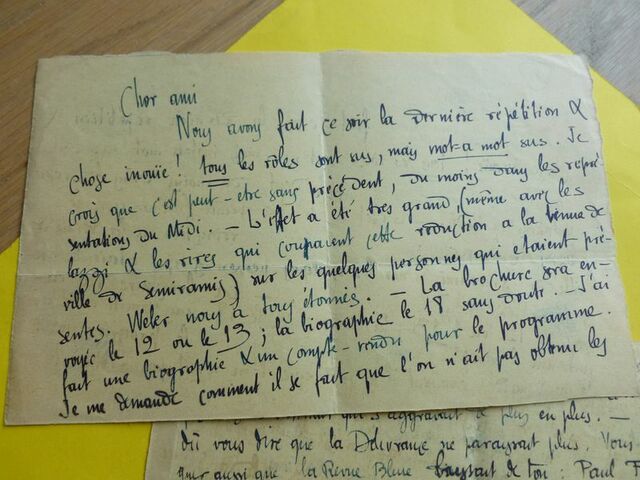 Cher ami
Nous avons fait ce soir la dernière répétition &
chose inouïe! tous les rôles sont sus, mais mot-a mot sus. Je
crois que c'est peut-etre sans précédent, du moins dans les repré-
sentations du Midi. — L'effet a été très grand, (même avec les
lazzi & les rires qui coupaient cette réduction a la tenue de
ville de Semiramis) sur les quelques personnes qui etaient pré-
sentes. Weber nous a tous étonnés. — La brochure sera en-
voyée le 12 ou le 13; la biographie le 18 sans doute. — J'ai
fait une biographie & un compte-rendu pour le programme.
Je me demande comment il se fait que l'on n'ait pas obtenu les
qui s'aggravait de plus en plus. —
dû vous dire que la Délivrance ne paraissait plus. Vous
aussi que la Revue Bleue de ton : Paul F